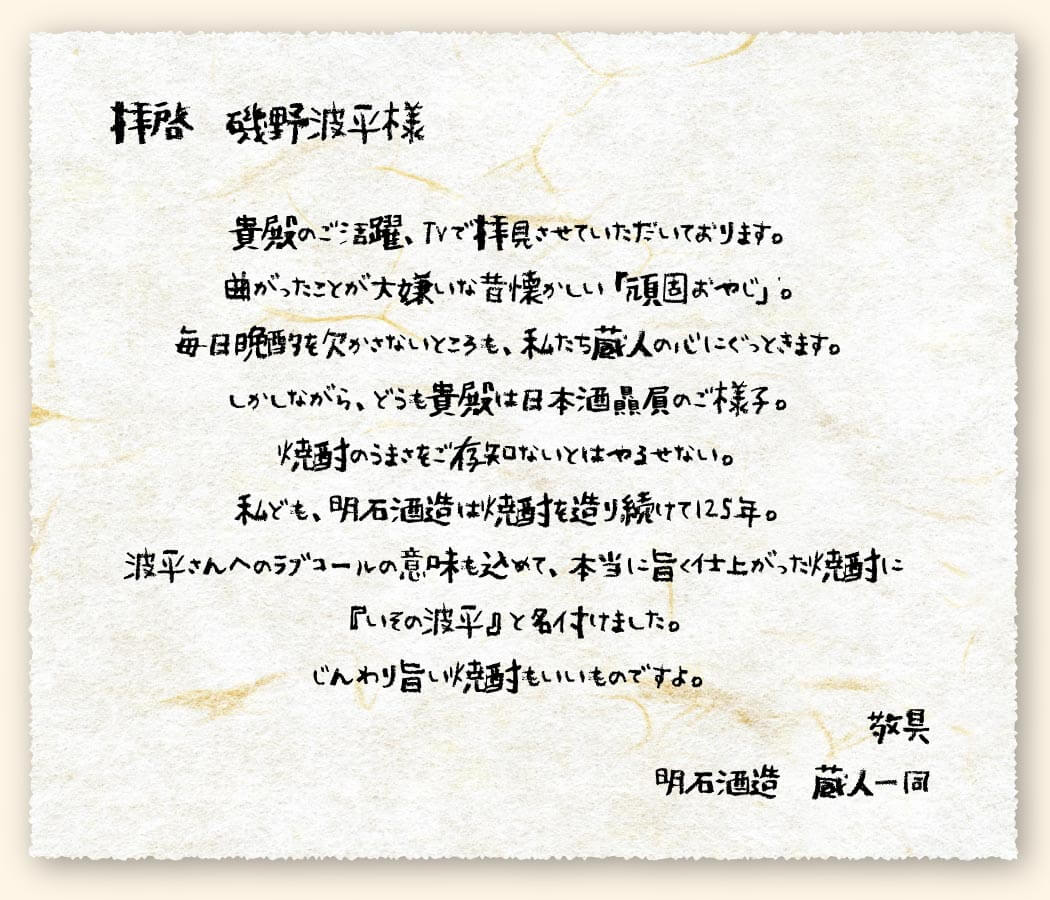 拝啓　磯野波平様
貴殿のご活躍、TVで拝見させていただいております。
曲がったことが大嫌いな昔懐かしい「頑固おやじ」。
毎日晩酌を欠かさないところも、私たち蔵人の心にぐっときます。
しかしながら、どうも貴殿は日本酒贔屓のご様子。
焼酎のうまさをご存知ないとはやるせない。
私ども、明石酒造は焼酎を造り続けて125年。
波平さんへのラブコールの意味も込めて、本当に旨く仕上がった焼酎に
『いその波平』と名付けました。
じんわり旨い焼酎もいいものですよ。
敬具
明石酒造　蔵人一同